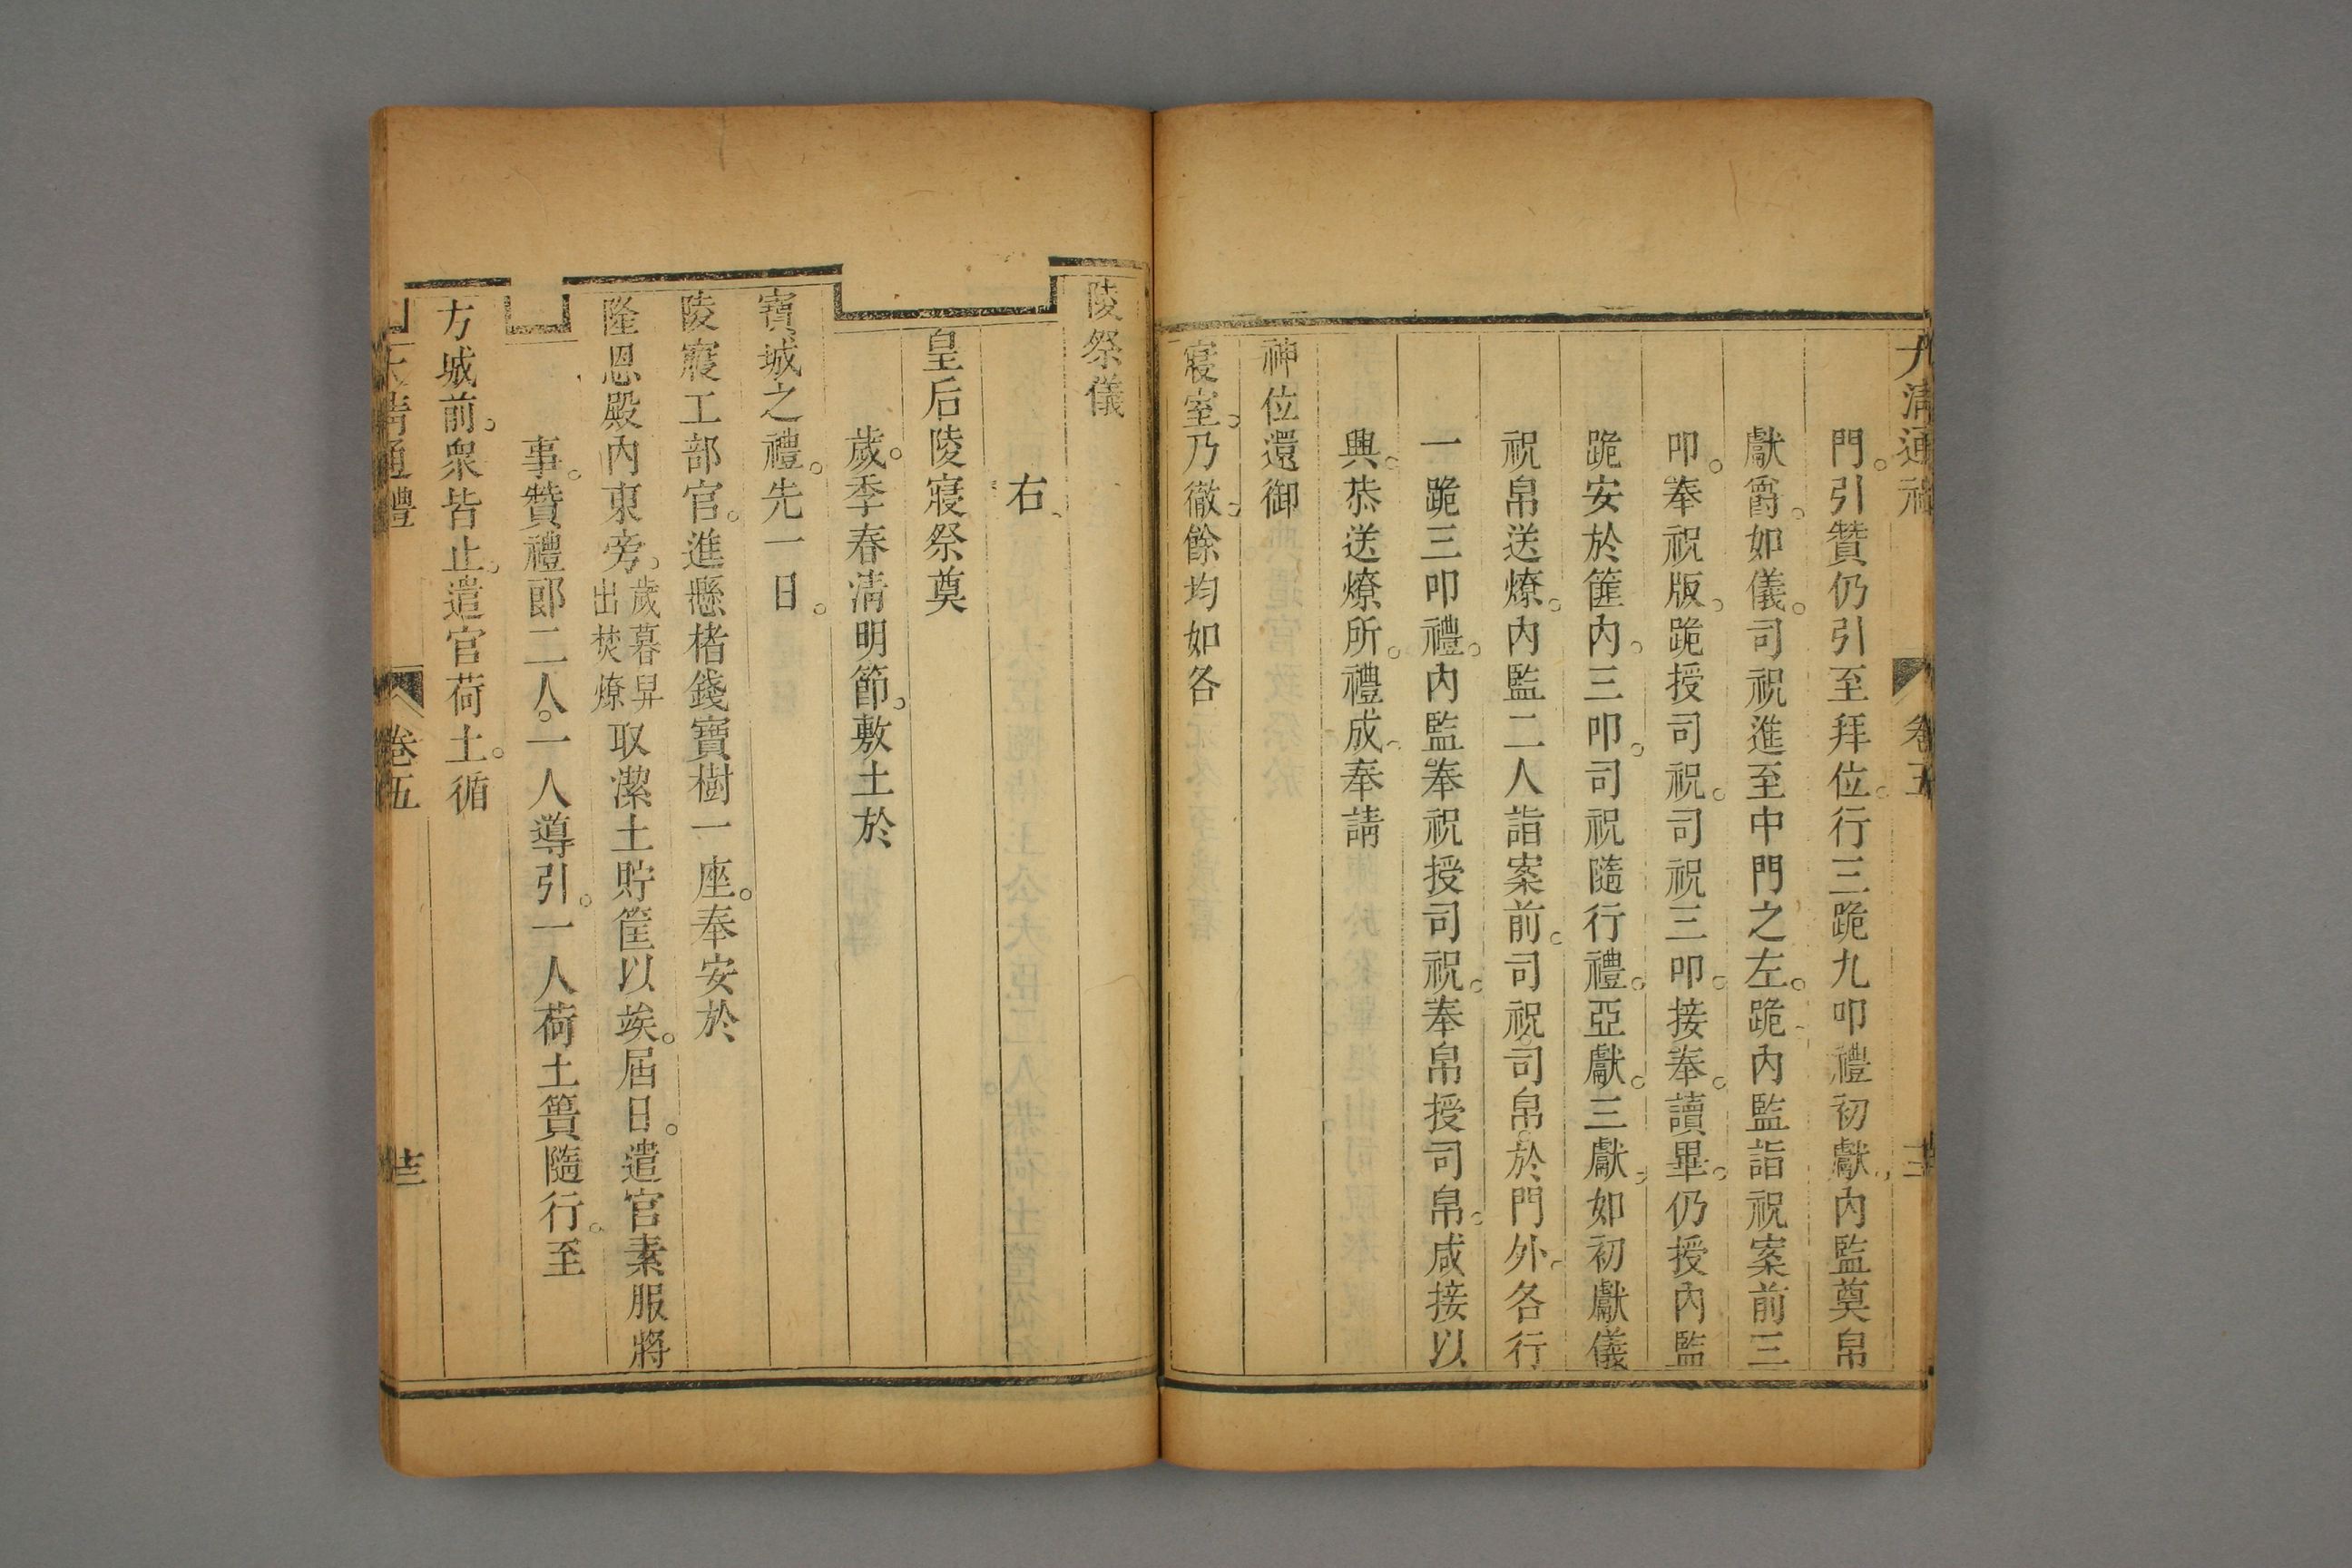 大清通禮 卷五
門。引贊仍引至拜位。行三跪九叩禮初獻。內監奠帛
獻爵。如儀。司祝進至中門之左。跪內監詣祝案前三
叩。奉祝版。跪授司祝。司祝三叩。接奉。讀畢。仍授內監
跪安於篚內。三叩。司祝隨行禮。亞獻。三獻。如初獻儀
祝帛送燎。內監二人詣案前。司祝。司帛。於門外。各行
一跪三叩禮。內監奉祝授司祝。奉帛授司帛。咸接以
興。恭送燎所。禮成。奉請
神位還御
寢室。乃徹。餘均如各
陵祭儀
右
皇后陵寢祭奠
歲。季春淸明節。敷土於
寶城之禮。先一日。
陵寢工部官。進懸楮錢寶樹一座。奉安於
隆恩殿內東旁。歲暮舁出焚燎取潔土貯筐以竢。屆日。遣官素服將
事。贊禮郞二人。一人導引。一人荷土簣隨行。至
方城前。衆皆止。遣官荷土。循
大清通禮 卷五